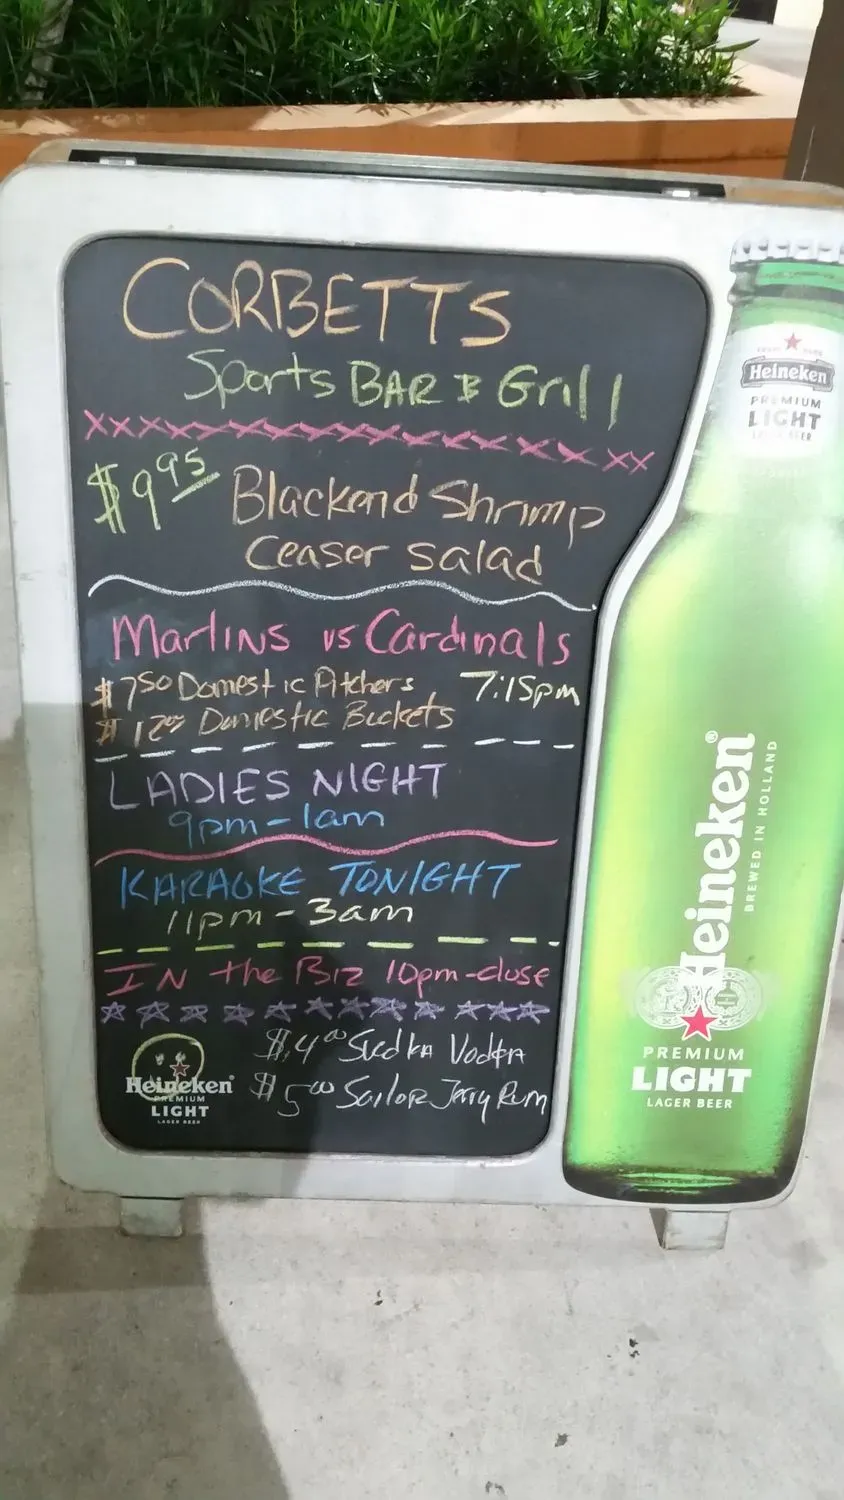 CORBETTS
Sports BAR & Grill
xxxxxxxxxxxxxxxxxx
$9.95 Blackend Shrimp
Ceaser salad
Marlins vs Cardinals
$7.50 Domestic Pitchers 7:15pm
$12.00 Domestic Buckets
LADIES NIGHT
9pm-1am
KARAOKE TONIGHT
11pm-3am
IN the Biz 10pm-close
$4.00 Svedka Vodka
$5.00 Sailor Jerry Rum
Heineken®
PREMIUM
LIGHT
LAGER BEER
Heineken
PREMIUM
LIGHT
LAGER BEER
Heineken®
BREWED IN HOLLAND
PREMIUM
LIGHT
LAGER BEER